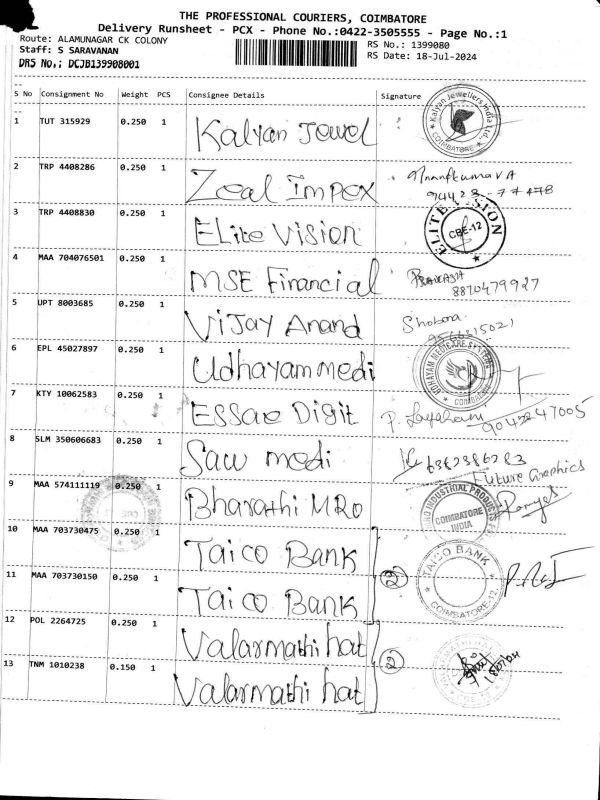 THE PROFESSIONAL COURIERS, COIMBATORE
Delivery Runsheet - PCX - Phone No.:0422-3505555 - Page No.:1
Route: ALAMUNAGAR CK COLONY
RS No.: 1399080
Staff: S SARAVANAN
RS Date: 18-Jul-2024
DRS No.; DCJB139908001
S No Consignment No Weight PCS Consignee Details Signature
1 TUT 315929 0.250 1 Kalyan Jewel Kalyan Jewellers India Ltd. COIMBATORE
2 TRP 4408286 0.250 1 Zeal Impex
3 TRP 4408830 0.250 1 Elite Vision ELITE VISION CBE-12
4 MAA 704076501 0.250 1 MSE Financial PRAKASH
8870479927
5 UPT 8003685 0.250 1 Vijay Anand Shobana
6 EPL 45027897 0.250 1 Udhayam medi UDHAYAM MEDICARE SYSTEMS COIMBATORE
7 KTY 10062583 0.250 1 Essae Digit
8 SLM 350606683 0.250 1 Saw medi 6382386283
Future Graphics
9 MAA 574111119 0.250 1 Bharathi MRO INDUSTRIAL PRODUCTS COIMBATORE INDIA
10 MAA 703730475 0.250 1 Taico Bank TAICO BANK COIMBATORE-12
11 MAA 703730150 0.250 1 Taico Bank 2
12 POL 2264725 0.250 1 Valarmathi hat 2
13 TNM 1010238 0.150 1 Valarmathi hat